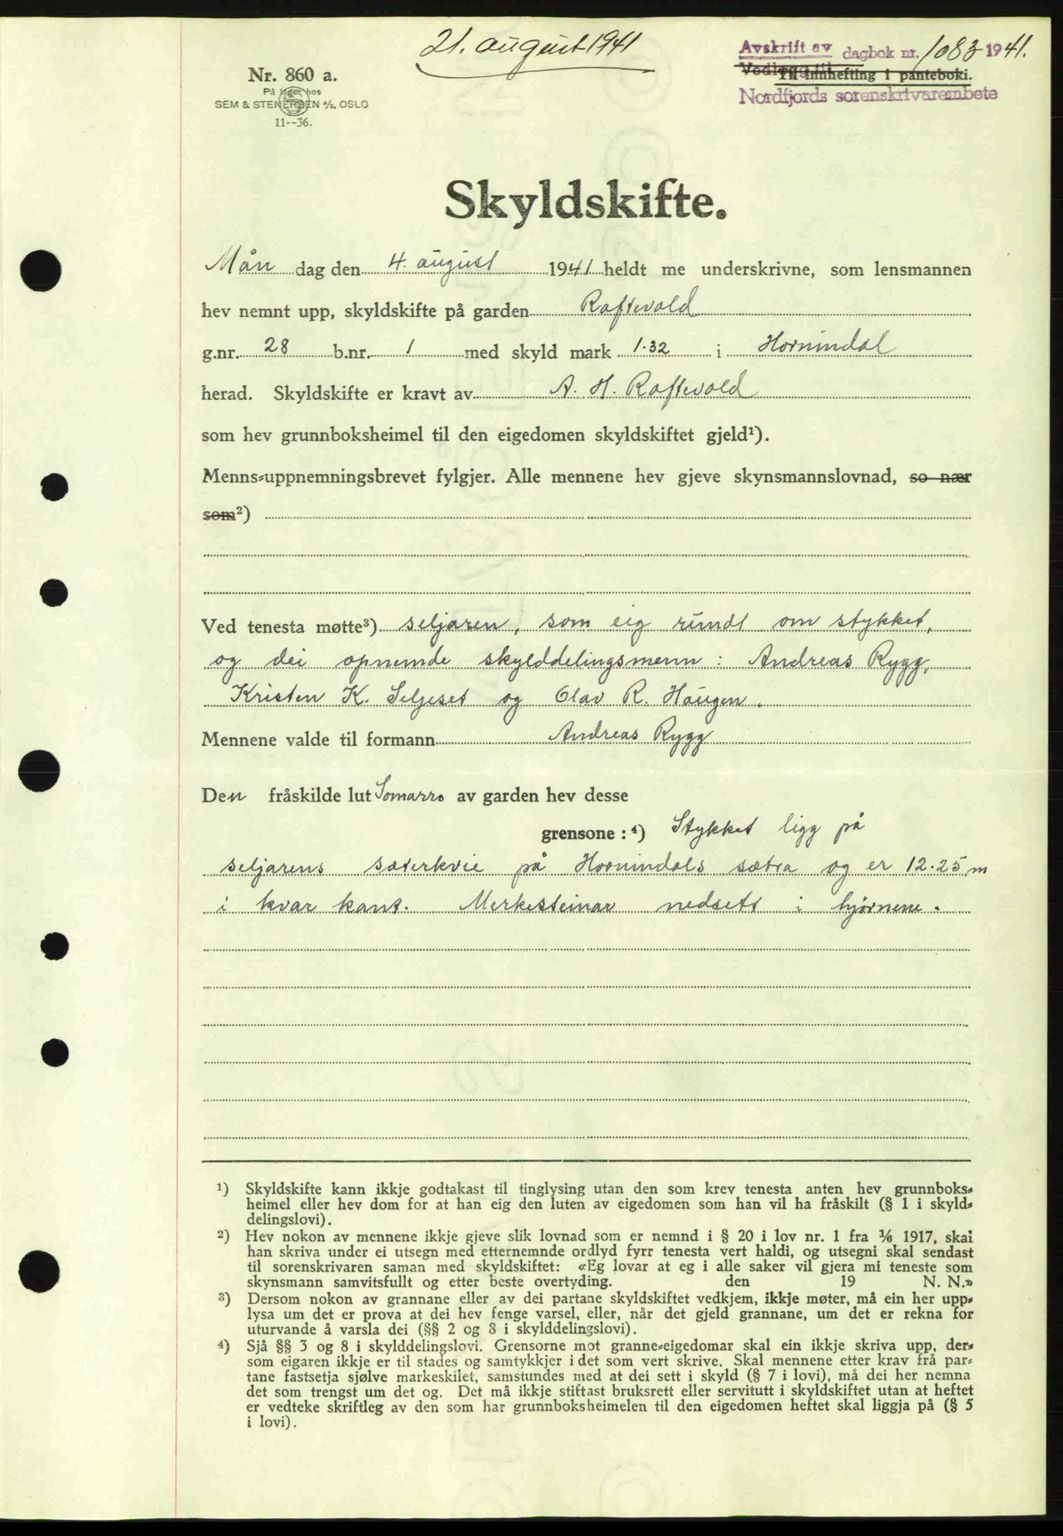 21. august 1941
Avskrift av dagbok nr. 1083 1941.
Til innhefting i panteboki.
Nordfjords sorenskrivarembete
Nr. 860 a.
På lager hos
SEM & STENERSEN A/S, OSLO
11--36.
Skyldskifte.
Mån dag den 4. august 1941 heldt me underskrivne, som lensmannen
hev nemnt upp, skyldskifte på garden Raftevold
g.nr. 28 b.nr. 1 med skyld mark 1.32 i Hornindal
herad. Skyldskifte er kravt av A. H. Raftevold
som hev grunnboksheimel til den eigedomen skyldskiftet gjeld¹).
Menns-uppnemningsbrevet fylgjer. Alle mennene hev gjeve skynsmannslovnad, so nær
som²)
Ved tenesta møtte³) seljaren, som eig rundt om stykket,
og dei opnemde skylddelingsmenn: Andreas Rygg,
Kristen K. Seljeset og Olav R. Haugen.
Mennene valde til formann Andreas Rygg
Den fråskilde lut Somarro av garden hev desse
grensone: ⁴) Stykket ligg på
seljarens sæterkvie på Hornindals sætra og er 12.25 m
i kvar kant. Merkesteinar nedsett i hjørnene.
¹) Skyldskifte kann ikkje godtakast til tinglysing utan den som krev tenesta anten hev grunnboks-
heimel eller hev dom for at han eig den luten av eigedomen som han vil ha fråskilt (§ 1 i skyld-
delingslovi).
²) Hev nokon av mennene ikkje gjeve slik lovnad som er nemnd i § 20 i lov nr. 1 fra 1/6 1917, skal
han skriva under ei utsegn med etternemnde ordlyd fyrr tenesta vert haldi, og utsegni skal sendast
til sorenskrivaren saman med skyldskiftet: «Eg lovar at eg i alle saker vil gjera mi teneste som
skynsmann samvitsfullt og etter beste overtyding. den 19 N. N.»
³) Dersom nokon av grannane eller av dei partane skyldskiftet vedkjem, ikkje møter, må ein her upp-
lysa um det er prova at dei hev fenge varsel, eller, når det gjeld grannane, um det er rekna for
uturvande å varsla dei (§§ 2 og 3 i skylddelingslovi).
⁴) Sjå §§ 3 og 8 i skylddelingslovi. Grensorne mot granne-eigedomar skal ein ikkje skriva upp, der-
som eigaren ikkje er til stades og samtykkjer i det som vert skrive. Skal mennene etter krav frå par-
tane fastsetja sjølve markeskilet, samstundes med at dei sett i skyld (§ 7 i lovi), må dei her nemna
det som trengst um det og. Det må ikkje stiftast bruksrett eller servitutt i skyldskiftet utan at heftet
er vedteke skriftleg av den som har grunnboksheimelen til den eigedomen heftet skal liggja på (§ 5
i lovi).